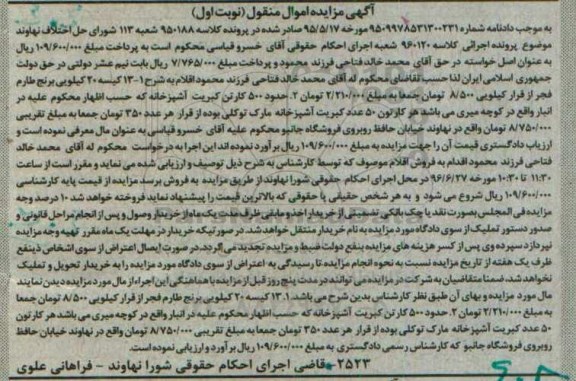 آگهی مزایده اموال منقول (نوبت اول)
به موجب دادنامه شماره ۹۵۰۹۹۷۸۵۳۱۳۰۰۲۳۱ مورخه ۹۵/۵/۱۷ صادر شده در پرونده کلاسه ۹۵۰۱۸۸ شعبه ۱۱۳ شورای حل اختلاف نهاوند
موضوع پرونده اجرائی کلاسه ۹۶۰۱۲۰ شعبه اجرای احکام حقوقی آقای خسرو قیاسی محکوم است به پرداخت مبلغ ۱۰۹/۶۰۰/۰۰۰ ریال
به عنوان اصل خواسته در حق آقای محمد خالد فتاحی فرزند محمود و پرداخت مبلغ ۷/۷۶۵/۰۰۰ ریال بابت نیم عشر دولتی در حق دولت
جمهوری اسلامی ایران لذا حسب تقاضای محکوم له آقای محمد خالد فتاحی فرزند محمود اقلام به شرح ۱-۱۳ کیسه ۲۰ کیلویی برنج طارم
فجر از قرار کیلویی ۸/۵۰۰ تومان جمعا به مبلغ ۲/۲۱۰/۰۰۰ تومان ۲. حدود ۵۰۰ کارتن کبریت آشپزخانه که حسب اظهار محکوم علیه در
انبار واقع در کوچه میری می باشد هر کارتون ۵۰ عدد کبریت آشپزخانه مارک توکلی بوده از قرار هر عدد ۳۵۰ تومان جمعا به مبلغ تقریبی
۸/۷۵۰/۰۰۰ تومان واقع در نهاوند خیابان حافظ روبروی فروشگاه جانبو محکوم علیه آقای خسرو قیاسی به عنوان مال معرفی نموده است و
ارزیاب دادگستری قیمت آن را جهت مزایده به مبلغ ۱۰۹/۶۰۰/۰۰۰ ریال برآورد نموده اند این اجرا به درخواست محکوم له آقای محمد خالد
فتاحی فرزند محمود اقدام به فروش اقلام موصوف که توسط کارشناس به شرح ذیل توصیف و ارزیابی شده می نماید و مقرر است از ساعت
۱۱:۳۰ تا ۱۰:۳۰ مورخه ۹۶/۶/۲۷ در محل اجرای احکام حقوقی شورا نهاوند از طریق مزایده به فروش برسد مزایده از قیمت پایه کارشناسی
۱۰۹/۶۰۰/۰۰۰ ریال شروع می شود و به هر شخص حقیقی یا حقوقی که بالاترین قیمت را پیشنهاد نماید فروخته خواهد شد ۱۰ درصد وجه
مزایده فی المجلس بصورت نقد یا چک بانکی تضمینی از خریدار اخذ و مابقی ظرف مدت یک ماه از خریدار وصول و پس از انجام مراحل قانونی و
صدور دستور تملیک از سوی دادگاه مورد مزایده به نام خریدار منتقل خواهد شد. در صورتیکه خریدار در مهلت یک ماه مقرر تهیه وجه مزایده
نپردازد سپرده وی پس از کسر هزینه های مزایده بنفع دولت ضبط و مزایده تجدید می گردد. در صورت ایصال اعتراض از سوی اشخاص ذینفع
ظرف یک هفته از تاریخ مزایده نسبت به نحوه انجام مزایده تا رسیدگی به اعتراض از سوی دادگاه مورد مزایده را به خریدار تحویل و تملیک
نخواهد شد. ضمنا متقاضیان به شرکت در مزایده می توانند در مدت پنج روز قبل از مزایده با هماهنگی این اجرا از مال مورد مزایده دیدن نمایند
مال مورد مزایده و بهای آن طبق نظر کارشناس بدین شرح می باشد ۱. ۱۳ کیسه ۲۰ کیلویی برنج طارم فجر از قرار کیلویی ۸/۵۰۰ تومان جمعا
به مبلغ ۲/۲۱۰/۰۰۰ تومان ۲. حدود ۵۰۰ کارتن کبریت آشپزخانه که حسب اظهار محکوم علیه در انبار واقع در کوچه میری می باشد هر کارتون
۵۰ عدد کبریت آشپزخانه مارک توکلی بوده از قرار هر عدد ۳۵۰ تومان جمعا به مبلغ تقریبی ۸/۷۵۰/۰۰۰ تومان واقع در نهاوند خیابان حافظ
روبروی فروشگاه جانبو که کارشناس رسمی دادگستری به مبلغ ۱۰۹/۶۰۰/۰۰۰ ریال برآورد و ارزیابی نموده است.
۲۵۲۳- قاضی اجرای احکام حقوقی شورا نهاوند - فراهانی علوی